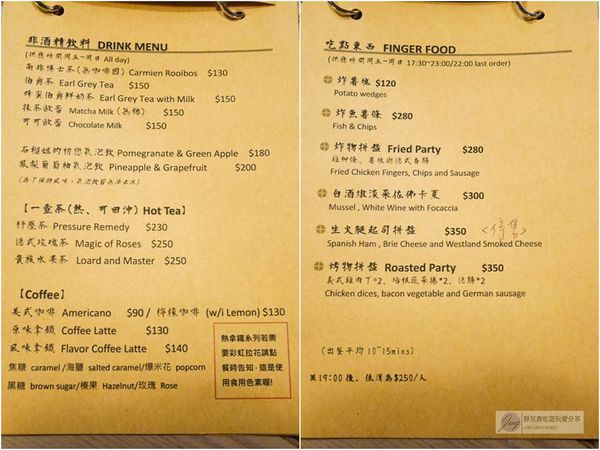 非酒精飲料 DRINK MENU
(供應時間周五~周日 All day)
南非博士茶(無咖啡因) Carmien Rooibos $130
伯爵茶 Earl Grey Tea $150
蜂蜜伯爵鮮奶茶 Earl Grey Tea with Milk $150
抹茶歐蕾 Matcha Milk (無糖) $150
可可歐蕾 Chocolate Milk $150
石榴姐的初戀氣泡飲 Pomegranate & Green Apple $180
鳳梨葡萄柚氣泡飲 Pineapple & Grapefruit $200
(為了保持風味，氣泡飲皆無法去冰)
【一壺茶(熱、可回沖) Hot Tea】
紓壓茶 Pressure Remedy $230
德式玫瑰茶 Magic of Roses $250
貴族水果茶 Loard and Master $250
【Coffee】
美式咖啡 Americano $90 / 檸檬咖啡 (w/i Lemon) $130
原味拿鐵 Coffee Latte $130
風味拿鐵 Flavor Coffee Latte $140
焦糖 caramel /海鹽 salted caramel/爆米花 popcorn
黑糖 brown sugar/榛果 Hazelnut/玫瑰 Rose
熱拿鐵系列若需
要彩虹拉花請點
餐時告知，這是使
用食用色素喔!
吃點東西 FINGER FOOD
(供應時間周五~周日 17:30~23:00/22:00 last order)
炸薯塊 $120
Potato wedges
炸魚薯條 $280
Fish & Chips
炸物拼盤 Fried Party $280
雞柳條、薯塊與德式香腸
Fried Chicken Fingers, Chips and Sausage
白酒燉淡菜佐佛卡夏 $300
Mussel , White Wine with Focaccia
生火腿起司拼盤 $350 <停售>
Spanish Ham , Brie Cheese and Westland Smoked Cheese
烤物拼盤 Roasted Party $350
義式雞肉丁*2、培根蔬菜捲*2、德腸*2
Chicken dices, bacon vegetable and German sausage
(出餐平均 10~15mins)
並19:00 後，低消為$250/人
靜兒貪吃遊玩愛分享